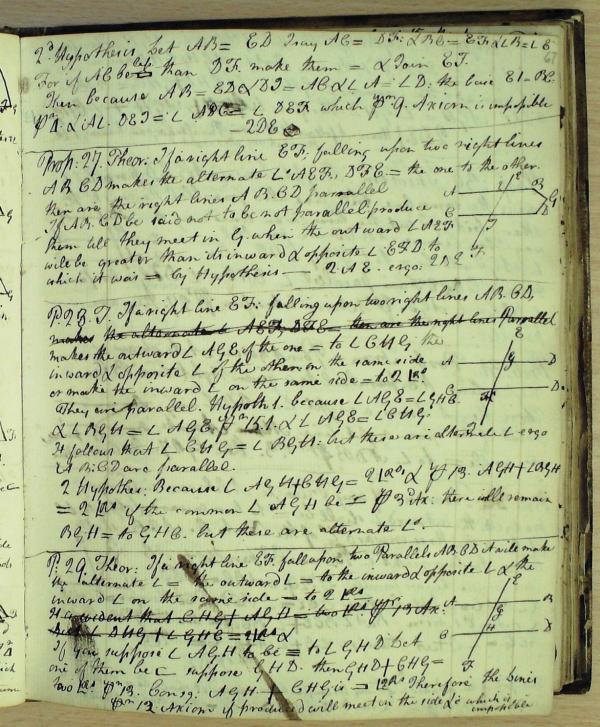 2d Hypothesis, Let AB = ED I say AC = DF: & BC = EF & L B = L E
For if AC be less than DF. make them = & Join EI.
Then because AB = ED & DI = AC & L A = L D: the base EI = BC.
& L DEI = L ABC = L DEF which pr 9. Axiom is impossible
2DE
Prop: 27. Theor: If a right line EF, falling upon two right lines
AB CD makes the alternate Ls AEF, DFE = the one to the other.
then are the right lines AB. CD parrallel
If AB. CD be said not to be not parallel produce
them till they meet in G. when the outward L AEF
will be greater than its inward & opposite L EFD to
which it was = by Hypothesis — 2 A E. ergo: 2 D E F.
A E B G
C F D
P. 28. T. If a right line EF: falling upon two right lines AB. CD,
makes the alternate L AEF, DFE = then are the right lines Parallel
makes the outward L AGE of the one = to L CHG the
inward & opposite L of the other on the same side
or make the inward L on the same side = to 2 Ls.
They are parallel. Hypoth 1. because L AGE = L GHC
& L BGH = L AGE pr 15.1. & L AGE = L CHG:
It follows that L CHG = L BGH: but these are alternate L ergo
AB: CD are parallel.
2 Hypothes: Because L AGH + CHG = 2 Ls & pr 13. AGH + L BGH
= 2 Ls if the common L AGH be — pr 3d Ax: there will remain
BGH = to GHC. but these are alternate Ls.
E
A G D
C H D.
P. 29 Theor: If a right line EF fall upon two Parallels AB CD it will make
the alternate L = the outward L = to the inward & opposite L & the
inward L on the same side = to 2 Ls
It is evident that CHG + AGH = two Ls pr 13 Ax:
But DHG + L GHC = 2 Ls &
If you suppose L AGH to be = to L GHD let
one of them be suppose GHD. then GHD + CHG =
two Ls pr 13. Con 19: AGH + CHG is 2 Ls Therefore the lines
pr 12 Axiom: if produced will meet in the side which is
impossible
E
A G B
C H D
F